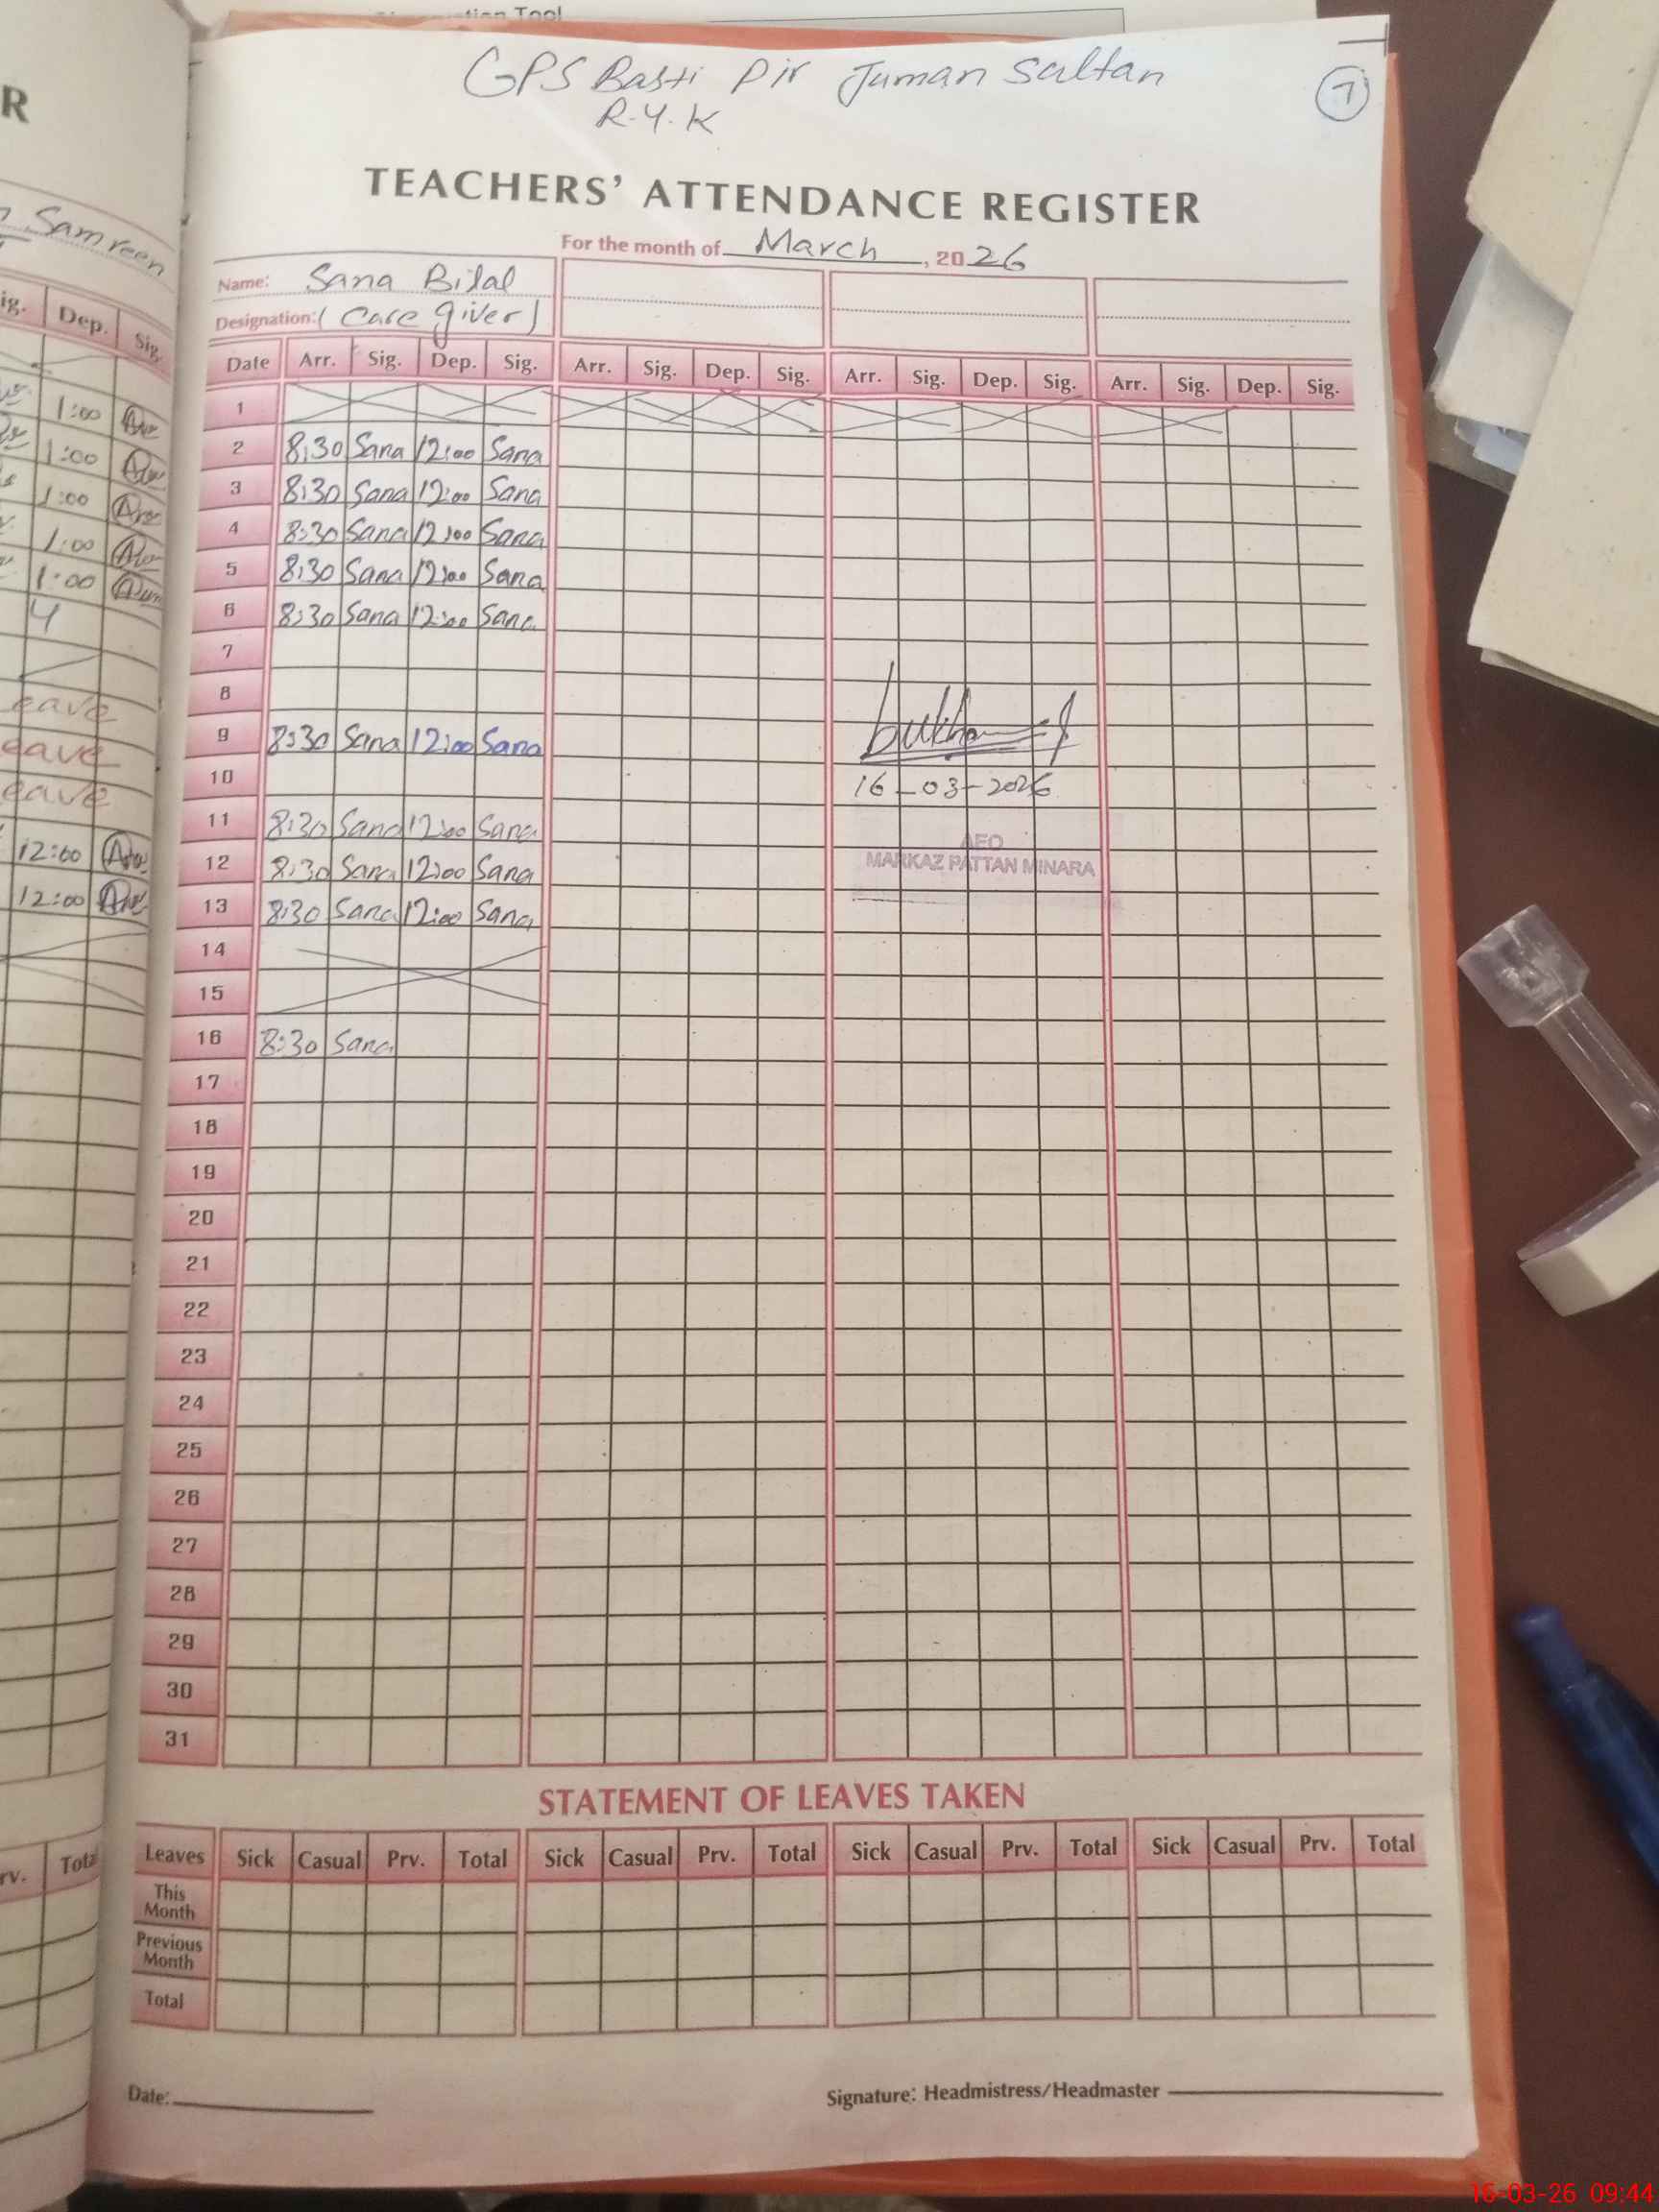 tion Tool
GPS Basti Pir Juman Saltan
R.Y.K
7
TEACHERS' ATTENDANCE REGISTER
For the month of March, 2026
Name: Sana Bilal
Designation: (Care giver)
Date Arr. Sig. Dep. Sig. Arr. Sig. Dep. Sig. Arr. Sig. Dep. Sig. Arr. Sig. Dep. Sig.
1
2 8:30 Sana 12:00 Sana
3 8:30 Sana 12:00 Sana
4 8:30 Sana 12:00 Sana
5 8:30 Sana 12:00 Sana
6 8:30 Sana 12:00 Sana
7
8
9 8:30 Sana 12:00 Sana
10
16-03-2026
11 8:30 Sana 12:00 Sana
AEO
12 8:30 Sana 12:00 Sana
MARKAZ PATTAN MINARA
13 8:30 Sana 12:00 Sana
14
15
16 8:30 Sana
17
18
19
20
21
22
23
24
25
26
27
28
29
30
31
STATEMENT OF LEAVES TAKEN
Leaves Sick Casual Prv. Total Sick Casual Prv. Total Sick Casual Prv. Total Sick Casual Prv. Total
This Month
Previous Month
Total
Date:
Signature: Headmistress/Headmaster
R
Samreen
ig. Dep. Sig.
1:00
1:00
1:00
1:00
1:00
4
eave
eave
eave
12:00
12:00
rv. Total
16-03-26 09:44